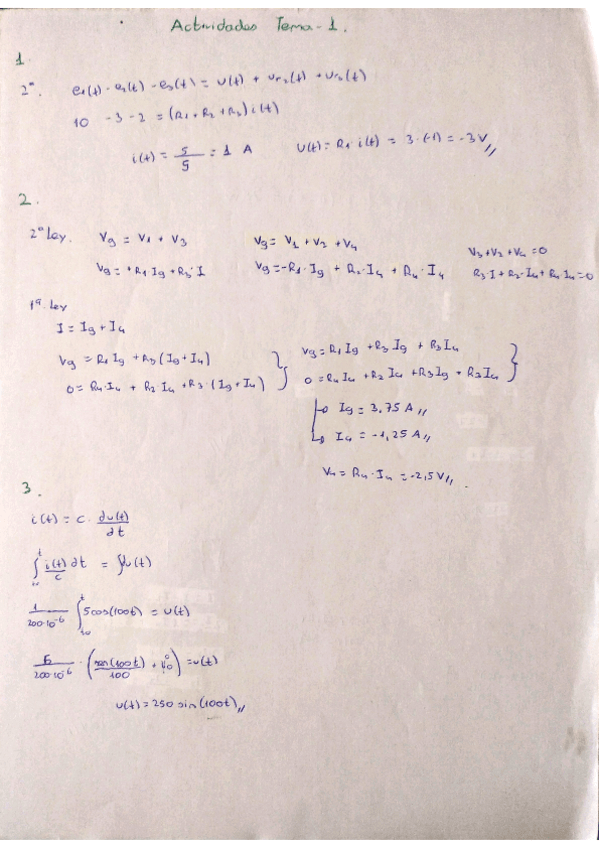 Actividades Tema-1.
1.
2ª. e1(t) - e2(t) - e3(t) = u(t) + ur2(t) + ur3(t)
10 -3 -2 = (R1+R2+R3) i(t)
i(t) = 5/5 = 1 A   U(t) = R1 · i(t) = 3·(-1) = -3V,,
2.
2ª Ley. Vg = V1 + V3   Vg = V1 + V2 + V4   V3+V2+V4 = 0
Vg = +R1·Ig + R3·I   Vg = -R1·Ig + R2·I4 + R4·I4   R3·I + R2·I4 + R4·I4 = 0
1ª Ley
I = Ig + I4
Vg = R1Ig + R3(Ig+I4)   Vg = R1Ig + R3Ig + R3I4
0 = R4·I4 + R2·I4 + R3·(Ig+I4)   0 = R4I4 + R2I4 + R3Ig + R3I4
Ig = 3,75 A,,
I4 = -1,25 A,,
V4 = R4·I4 = -2,5V,,.
3.
i(t) = C· du(t)/dt
∫ i(t)/C dt = ∫du(t)
1/200·10^-6 ∫ 5cos(100t) = u(t)
5/200·10^-6 · (sen(100t)/100 + ) = u(t)
u(t) = 250 sin(100t),,